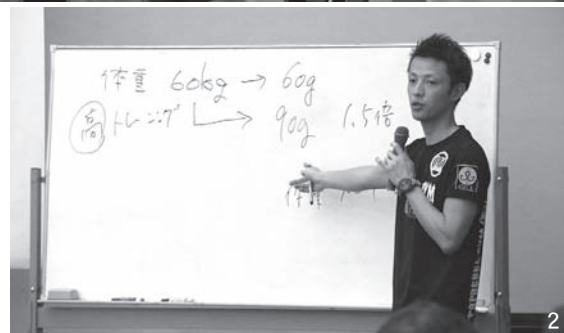 体重 60kg → 60g
高 トレーニング → 90g 1.5倍
体重
2